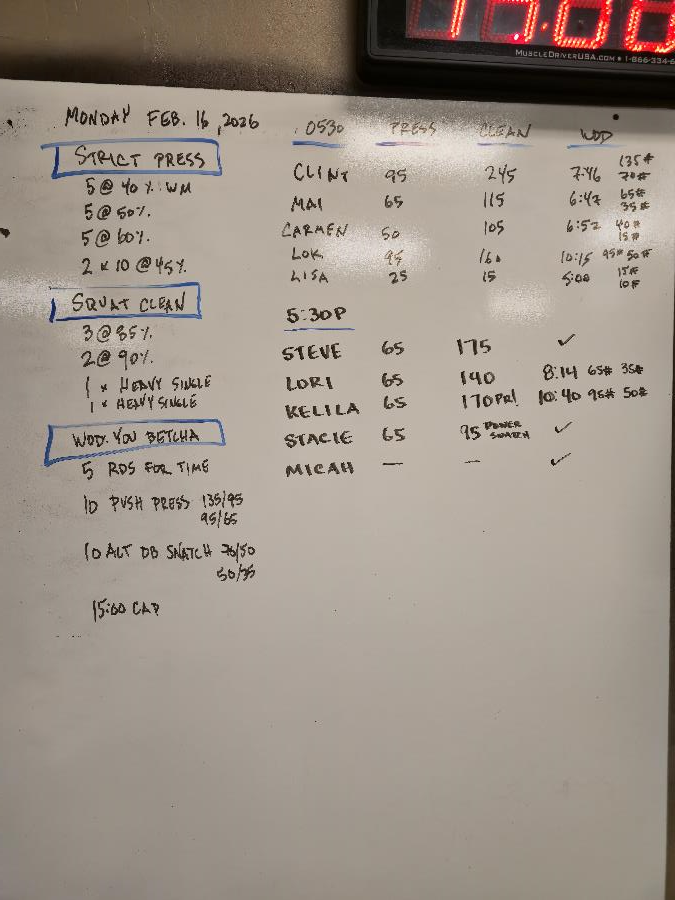 15:00
MUSCLEDRIVERUSA.COM • 1-866-334-6
MONDAY FEB. 16, 2026
STRICT PRESS
5 @ 40% WM
5 @ 50%
5 @ 60%
2 x 10 @ 45%
SQUAT CLEAN
3 @ 85%
2 @ 90%
1 x HEAVY SINGLE
1 x HEAVY SINGLE
WOD: YOU BETCHA
5 RDS FOR TIME
10 PUSH PRESS 135/95
95/65
10 ALT DB SNATCH 70/50
50/35
15:00 CAP
0530 PRESS CLEAN WOD
CLINT 95 245 7:46 135# 70#
MAI 65 115 6:47 65# 35#
CARMEN 50 105 6:52 40# 15#
LOK 95 160 10:15 95# 50#
LISA 25 15 5:00 15# 10#
5:30P
STEVE 65 175 ✓
LORI 65 140 8:14 65# 35#
KELILA 65 170 PR! 10:40 95# 50#
STACIE 65 95 POWER SNATCH ✓
MICAH — — ✓